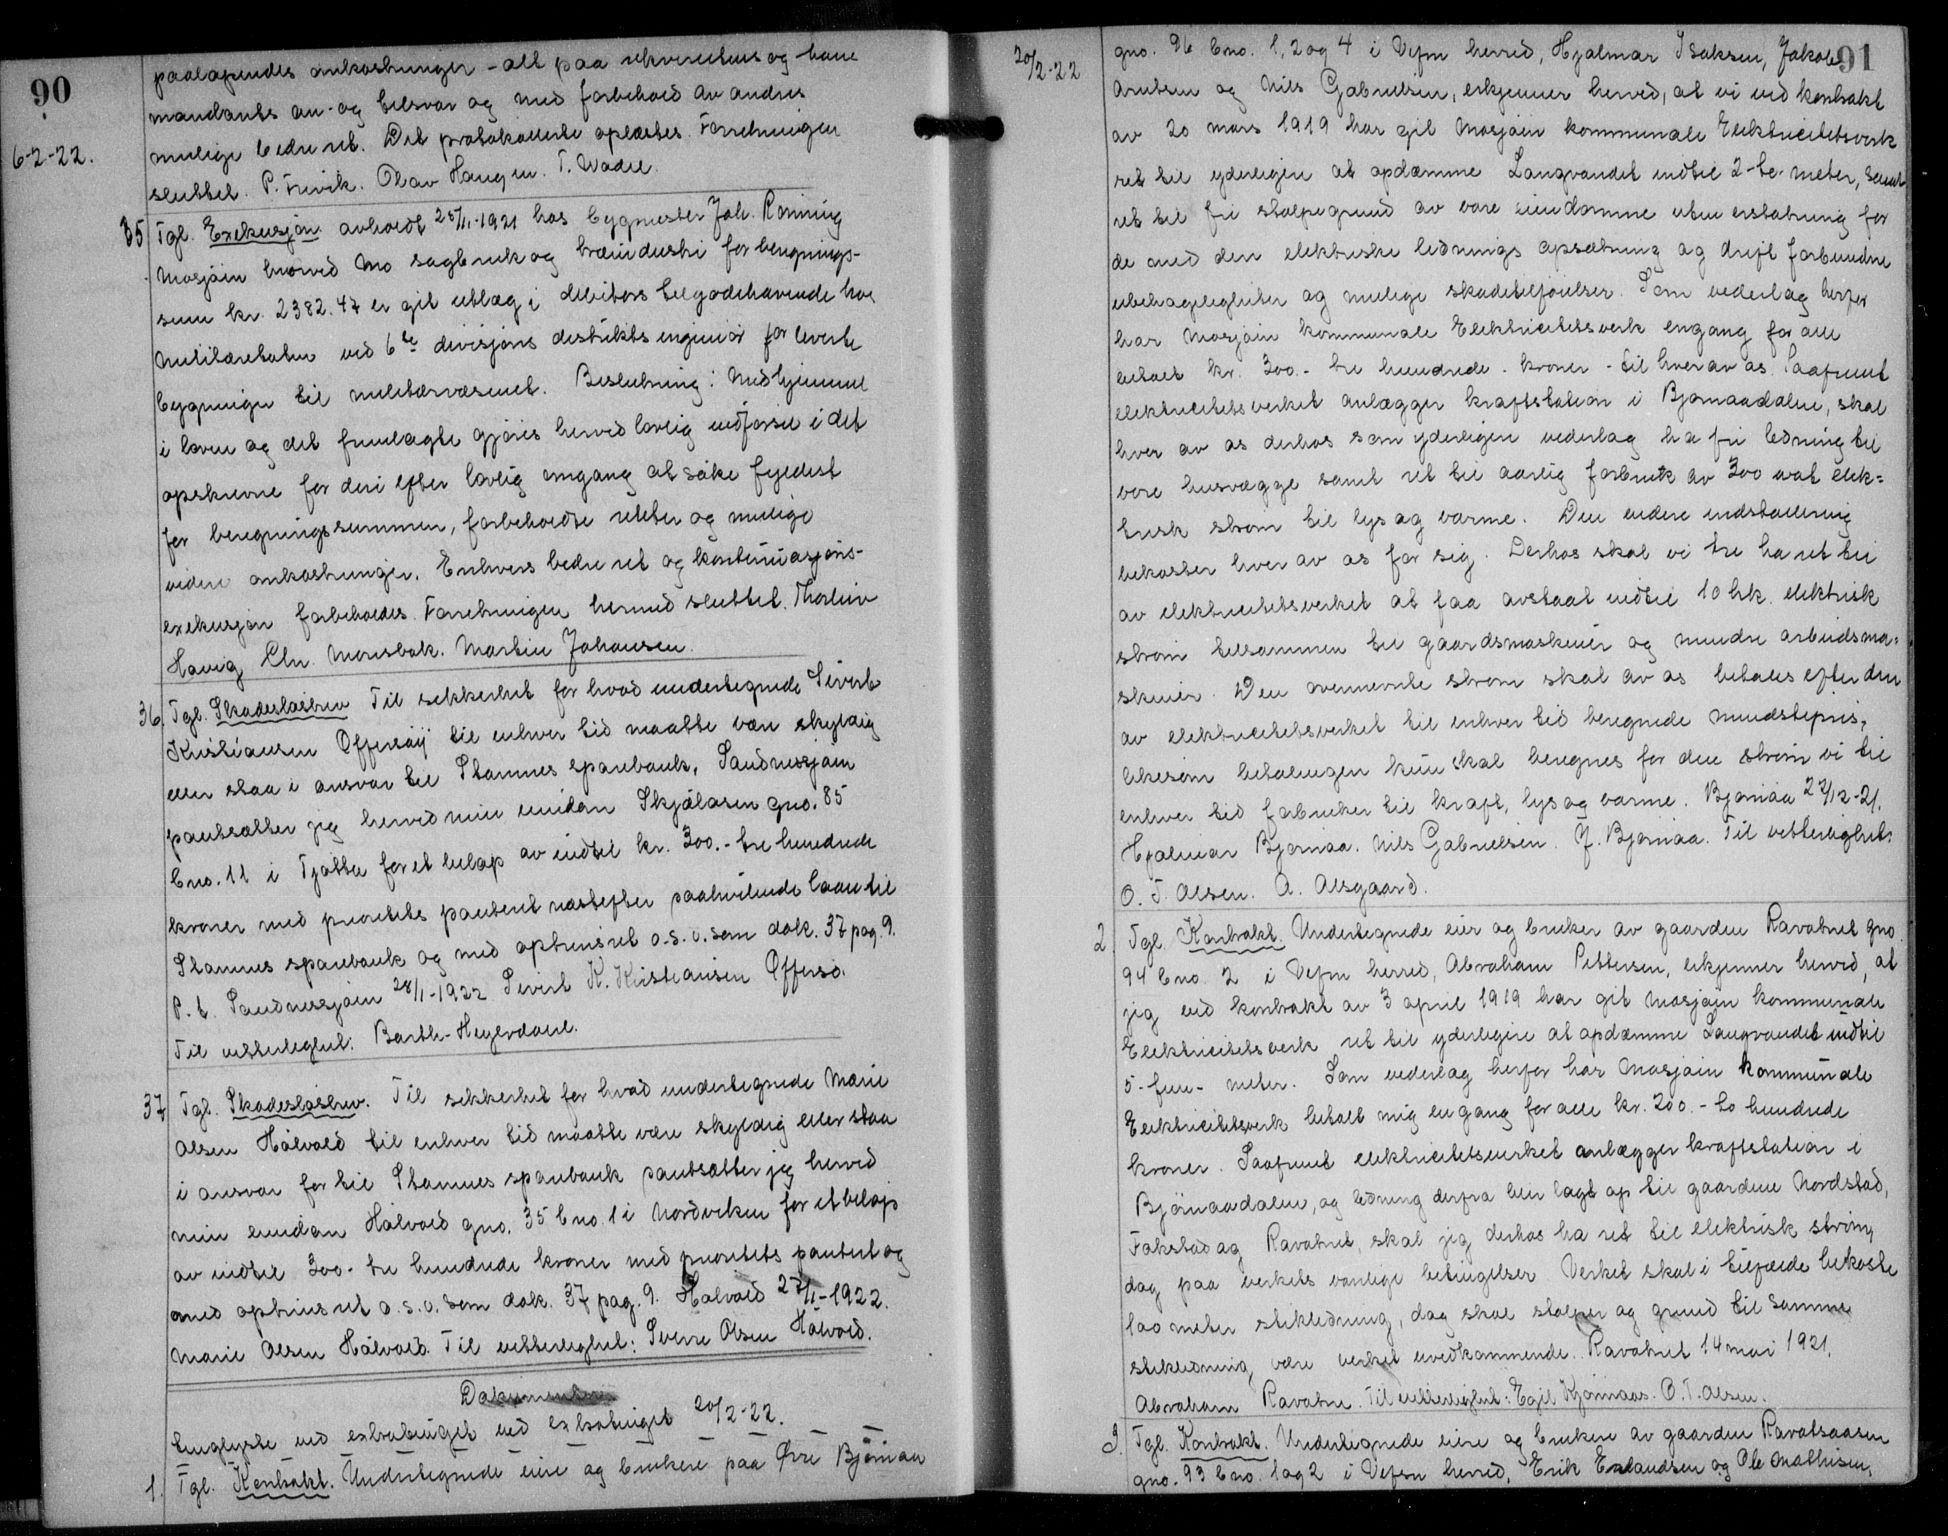 90
6-2-22.
paaløpendes omkostninger - alt paa rekvirentens og hans
mandants an- og tilsvar og med forbehold av andres
mulige bedre ret. Det protokollerte oplæstes. Forretningen
sluttet. P. Olav Haugen. T.
35 Tgl. Exekusjon avholdt 25/11-1921 hos bygmester Joh. Rønning
Mosjøen hvorved Mo sagbruk og træindustri for beregnings-
sum kr. 2382.47 er git utlæg i debitors tilgodehavende hos
Militæretaten ved 6te divisjons distriktsingeniør for leverte
bygninger til militærvæsenet. Beslutning: Med hjemmel
i loven og det fremlagte gjøres herved lovlig indførsel i det
opskrevne for deri efter lovlig omgang at søke fyldest
for beregningssummen, forbeholdte renter og mulige
videre omkostninger. Enhvers bedre ret og kontinuasjons-
exekusjon forbeholdes. Forretningen hermed sluttet. Thorleiv
Havig Chr. Monsbak. Martin Johansen.
36 Tgl. Skadesløsbrev Til sikkerhet for hvad undertegnede Sivert
Kristiansen Offersøy til enhver tid maatte være skyldig
eller staa i ansvar til Stamnes sparebank, Sandnessjøen
pantsætter jeg herved min eiendom Skjølåsen gno. 85
bno. 11 i Tjøtta for et beløp av indtil kr. 300.- tre hundrede
kroner med prioritets panteret næstefter paahvilende laan til
Stamnes sparebank og med optrinsret o.s.v. som dok. 37 pag. 9.
P.t. Sandnessjøen 28/1-1922 Sivert K. Kristiansen Offersø.
Til vitterlighet: Barth-Heyerdahl.
37 Tgl. Skadesløsbrev. Til sikkerhet for hvad undertegnede Marie
Olsen Hålvold til enhver tid maatte være skyldig eller staa
i ansvar for til Stamnes sparebank pantsætter jeg herved
min eiendom Hålvold gno. 35 bno. 1 i Nordviken for et beløp
av indtil 300- tre hundrede kroner med prioritets panteret og
med optrinsret o.s.v. som dok. 37 pag. 9. Hålvold 27/1-1922.
Marie Olsen Hålvold. Til vitterlighet: Sverre Olsen Hålvold.
Dokumenter
tinglyste ved extratinget ved extratinget 20/2-22.
1. Tgl. Kontrakt. Undertegnede eiere og brukere paa Øvre Bjørnaa
91
20/2-22
gno. 96 bno. 1, 2 og 4 i Vefsn herred, Hjalmar Isaksen, Jakob
Arntsen og Nils Gabrielsen, erkjenner herved, at vi ved kontrakt
av 20 mars 1919 har git Mosjøen kommunale Elektricitetsverk
ret til yderligere at opdæmme Langvandet indtil 2-to- meter, samt
ret til fri stolpegrund av vore eiendomme uten erstatning for
de med den elektriske lednings opsætning og drift forbundne
ubehageligheter og mulige skadetilføielser. Som vederlag herfor
har Mosjøen kommunale Elektricitetsverk engang for alle
betalt kr. 300.- tre hundrede - kroner - til hver av os. Saafremt
elektricitetsverket anlægger kraftstation i Bjørnaadalen, skal
hver av os derhos som yderligere vederlag ha fri ledning til
vore husvægge samt ret til aarlig forbruk av 300 wat elek=
trisk strøm til lys og varme. Den videre indstallering
bekoster hver av os for sig. Derhos skal vi tre ha ret til
av elektricitetsverket at faa avstaat indtil 10 hk. elektrisk
strøm tilsammen til gaardsmaskiner og mindre arbeidsma=
skiner. Den ovennevnte strøm skal av os betales efter den
av elektricitetsverket til enhver tid beregnede mindstepris,
likesom betalingen kun skal beregnes for den strøm vi til
enhver tid forbruker til kraft, lys og varme. Bjørnaa 22/12-21.
Hjalmar Bjørnaa. Nils Gabrielsen. J. Bjørnaa. Til vitterlighet:
O. T. Olsen. A. Alsgaard.
2 Tgl. Kontrakt. Undertegnede eier og bruker av gaarden Ravatnet gno.
94 bno. 2 i Vefsn herred, Abraham Pettersen, erkjenner herved, at
jeg ved kontrakt av 3 april 1919 har git Mosjøen kommunale
Elektricitetsverk ret til yderligere at opdæmme Langvandet indtil
5-fem- meter. Som vederlag herfor har Mosjøen kommunale
Elektricitetsverk betalt mig en gang for alle kr. 200.- to hundrede
kroner. Saafremt elektricitetsverket anlægger kraftstation i
Bjørnaadalen, og ledning derfra blir lagt op til gaardene Nordstad,
Fokstad og Ravatnet, skal jeg derhos ha ret til elektrisk strøm,
dog paa verkets vanlige betingelser. Verket skal i tilfælde bekoste
100 meter stikledning, dog skal stolper og grund til samme
stikledning være verket uvedkommende. Ravatnet 14 mai 1921.
Abraham Ravatne. Til vitterlighet: Egil Kjørnaas. O. T. Olsen.
3. Tgl. Kontrakt. Undertegnede eiere og brukere av gaarden Ravatsaasen
gno. 93 bno. 1 og 2 i Vefsn herred, Erik Erlandsen og Ole Mathisen,